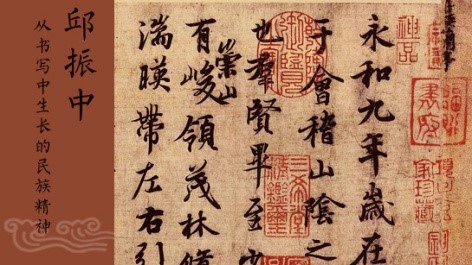 邱振中
从书写中生长的民族精神
神品
永和九年歲在
于會稽山陰之
也羣賢畢至少
有崇山峻領茂林脩
湍暎帶左右引